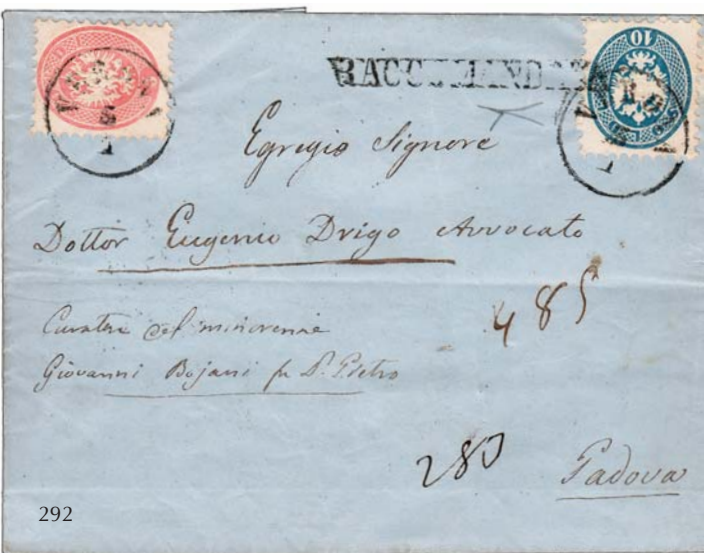 RACCOMANDATA
10
Egregio Signore
Dottor Eugenio Drigo Avvocato
Curatore del minorenne
Giovanni Bojani fu D. Pietro
485
283
Padova
292